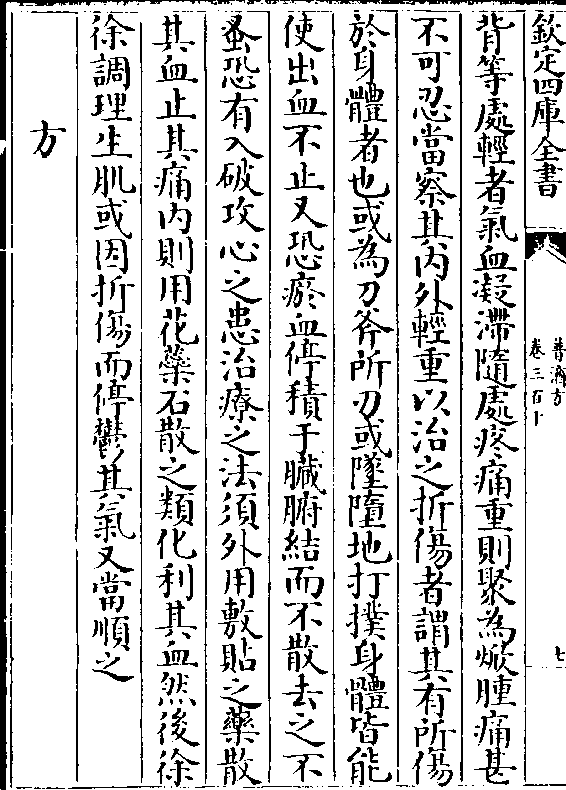 欽定四庫全書
普濟方
卷三百十
七
背等處輕者氣血凝滯隨處疼痛重則聚為焮腫痛甚
不可忍當察其内外輕重以治之折傷者謂其有所傷
於身體者也或為刀斧所刃或墜墮地打撲身體皆能
使出血不止又恐瘀血停積于臟腑結而不散去之不
蚤恐有入破攻心之患治療之法須外用敷貼之藥散
其血止其痛内則用花蘂石散之類化利其血然後徐
徐調理生肌或因折傷而停鬱其氣又當順之
方